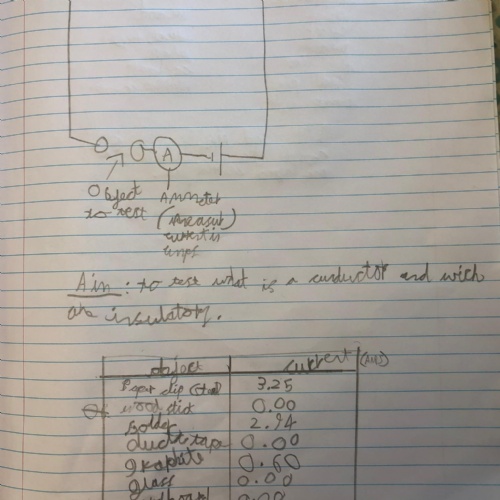 A
Object
to test
Ammeter
(measure)
current in
amps
Aim : to test what is a conductor and wich
are insulators.
object current (amps)
Paper clip (steel) 3.25
wood 0.00
Solder 2.94
duck tape 0.00
graphite 0.60
glass 0.00
0.00